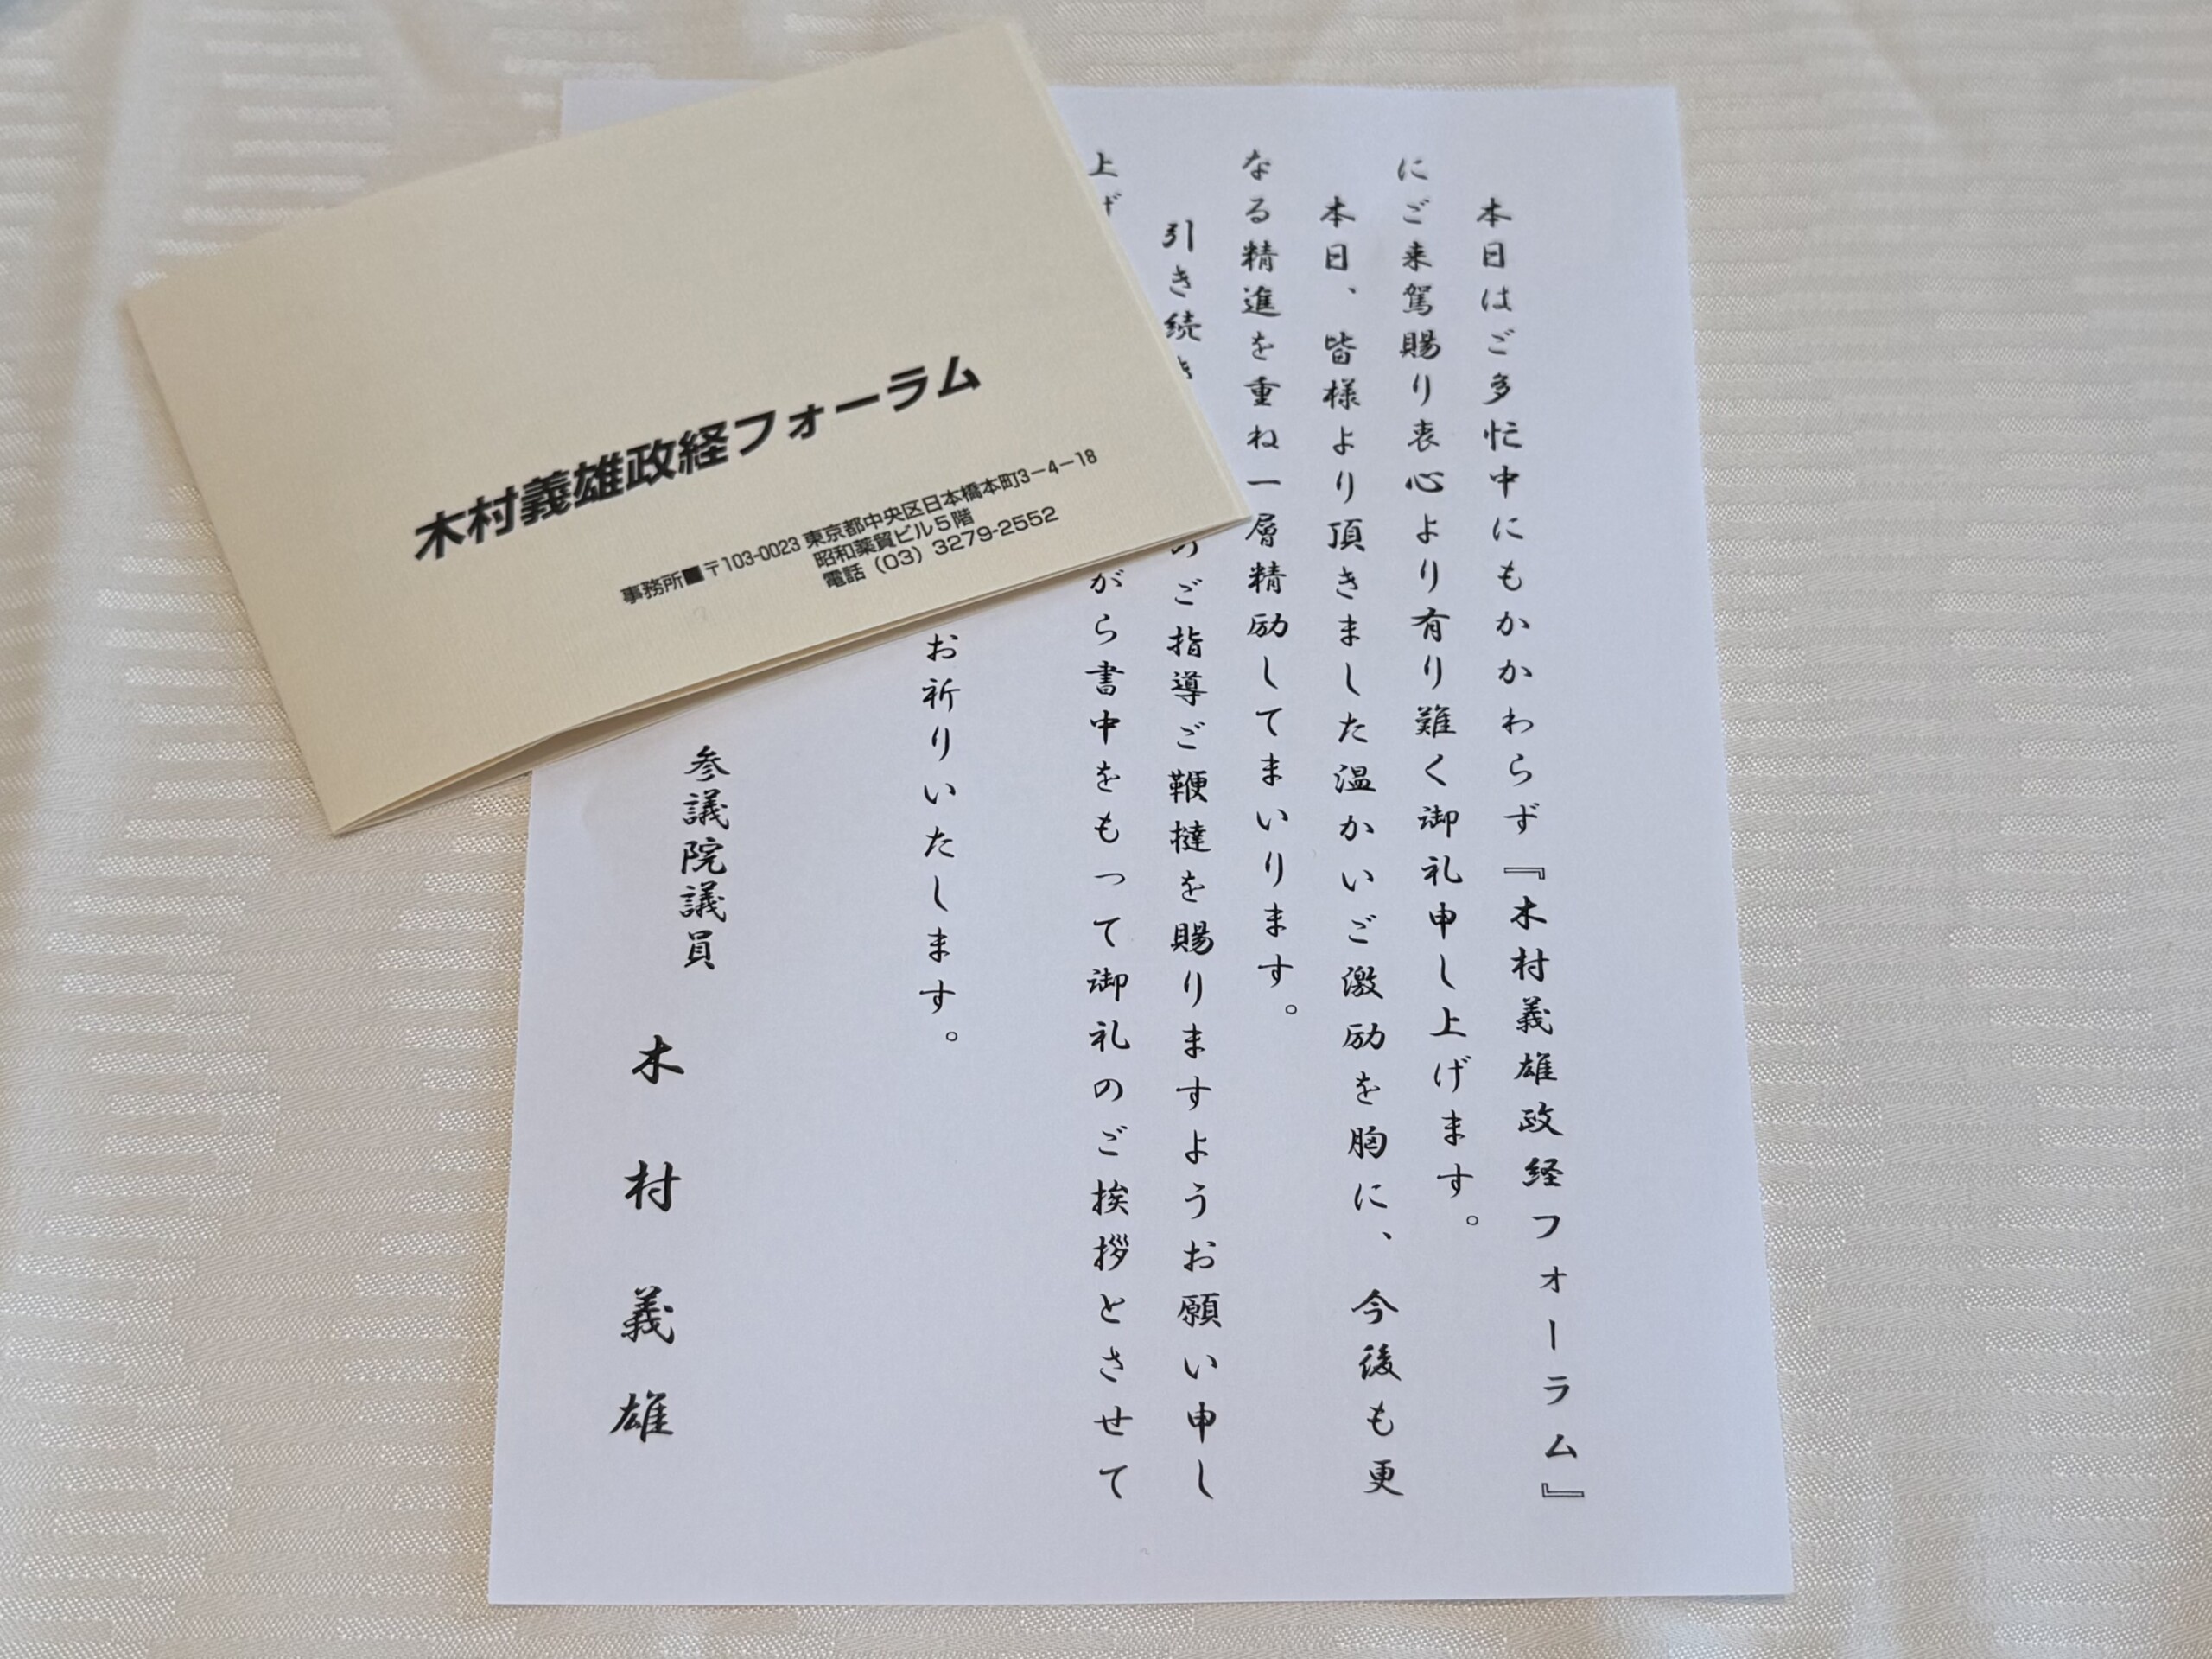 木村義雄政経フォーラム
事務所■〒103-0023 東京都中央区日本橋本町3－4－18
昭和薬貿ビル5階
電話（03）3279-2552
本日はご多忙中にもかかわらず『木村義雄政経フォーラム』
にご来駕賜り衷心より有り難く御礼申し上げます。
本日、皆様より頂きました温かいご激励を胸に、今後も更
なる精進を重ね一層精励してまいります。
引き続き のご指導ご鞭撻を賜りますようお願い申し
上げ がら書中をもって御礼のご挨拶とさせて
お祈りいたします。
参議院議員
木村義雄